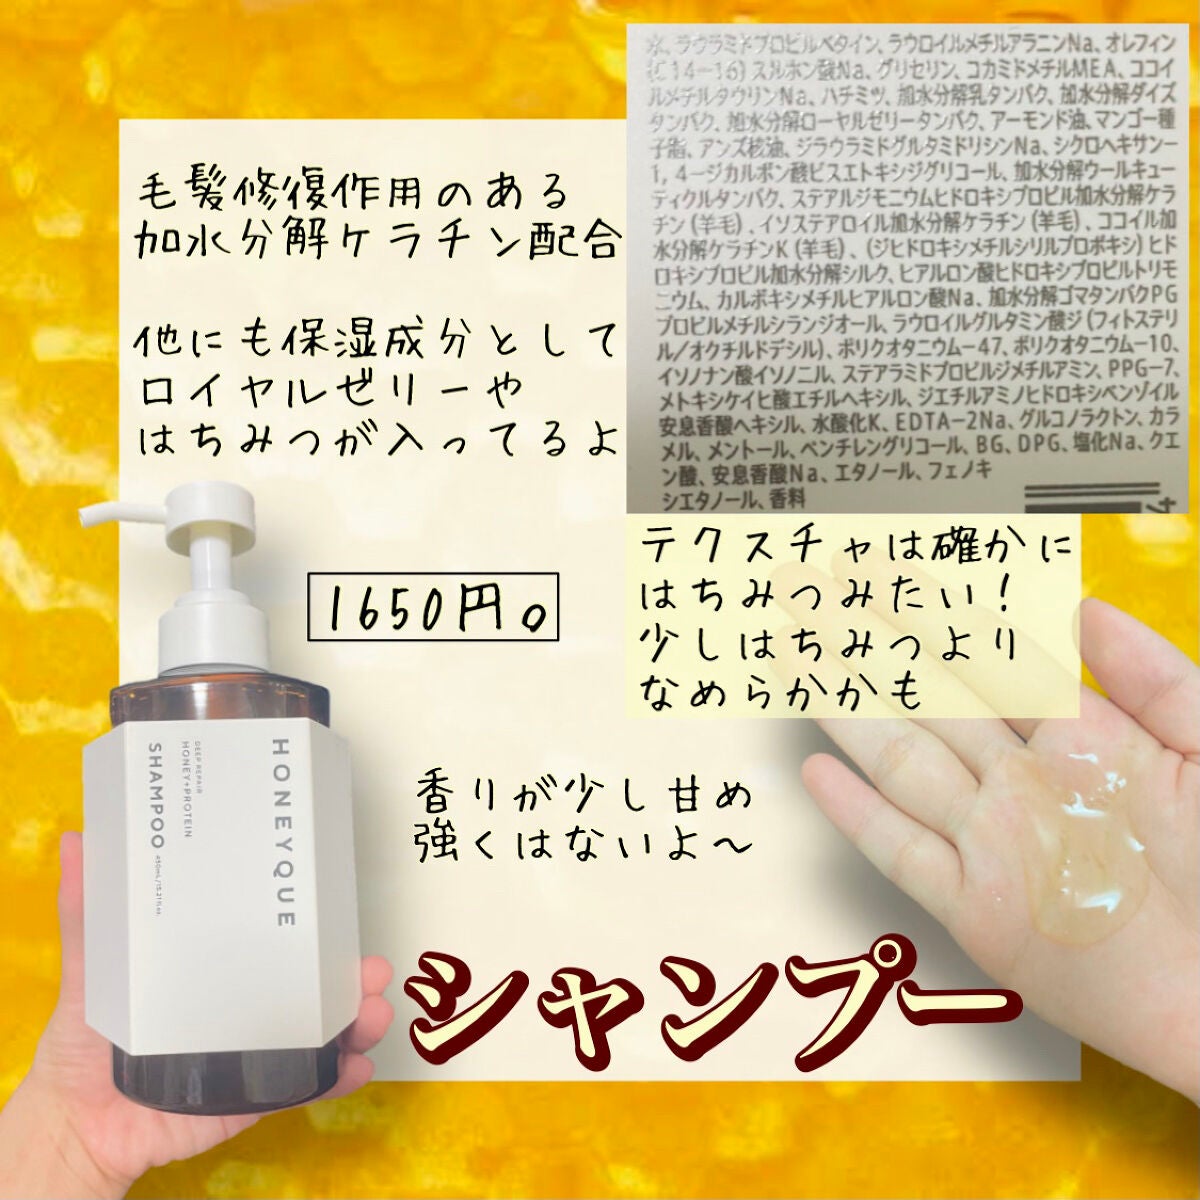 毛髪修復作用のある
加水分解ケラチン配合
他にも保湿成分として
ロイヤルゼリーや
はちみつが入ってるよ
水、ラウラミドプロピルベタイン、ラウロイルメチルアラニンNa、オレフィン
(C14-16)スルホン酸Na、グリセリン、コカミドメチルMEA、ココイ
ルメチルタウリンNa、ハチミツ、加水分解乳タンパク、加水分解ダイズ
タンパク、加水分解ローヤルゼリータンパク、アーモンド油、マンゴー種
子脂、アンズ核油、ジラウラミドグルタミドリシンNa、シクロヘキサン-
1,4-ジカルボン酸ビスエトキシジグリコール、加水分解ウールキュー
ティクルタンパク、ステアルジモニウムヒドロキシプロピル加水分解ケラ
チン(羊毛)、イソステアロイル加水分解ケラチン(羊毛)、ココイル加
水分解ケラチンK(羊毛)、(ジヒドロキシメチルシリルプロポキシ)ヒド
ロキシプロピル加水分解シルク、ヒアルロン酸ヒドロキシプロピルトリモ
ニウム、カルボキシメチルヒアルロン酸Na、加水分解ゴマタンパクPG
プロピルメチルシランジオール、ラウロイルグルタミン酸ジ(フィトステリ
ル/オクチルドデシル)、ポリクオタニウム-47、ポリクオタニウム-10、
イソノナン酸イソノニル、ステアラミドプロピルジメチルアミン、PPG-7、
メトキシケイヒ酸エチルヘキシル、ジエチルアミノヒドロキシベンゾイル
安息香酸ヘキシル、水酸化K、EDTA-2Na、グルコノラクトン、カラ
メル、メントール、ペンチレングリコール、BG、DPG、塩化Na、クエ
ン酸、安息香酸Na、エタノール、フェノキ
シエタノール、香料
1650円。
テクスチャは確かに
はちみつみたい!
少しはちみつより
なめらかかも
香りが少し甘め
強くはないよ〜
HONEYQUE
DEEP REPAIR
HONEY+PROTEIN
SHAMPOO 450mL/15.21fl.oz.
シャンプー